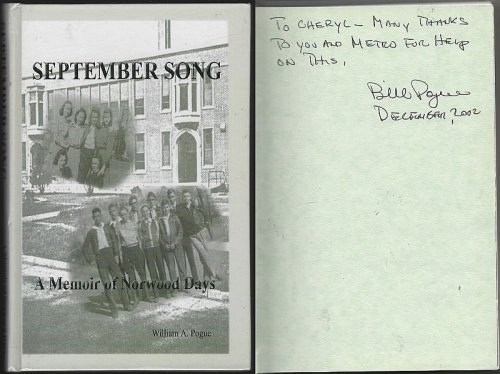 SEPTEMBER SONG
A Memoir of Norwood Days
William A. Pogue
TO CHERYL - MANY THANKS
TO YOU AND METRO FOR HELP
ON THIS,
Bill Pogue
DECEMBER, 2002